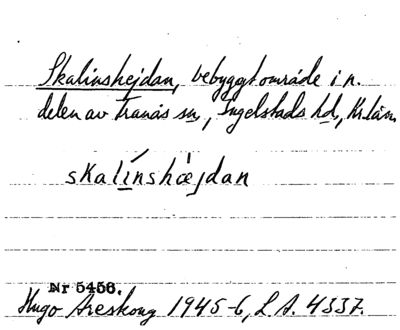 Skalinshejdan, bebyggt område i n.
delen av Tranås sn, Ingelstads hd, Kr.län.
skalínshæ̀jdan
Nr 5456.
Hugo Areskoug 1945-6, L.A. 4337.